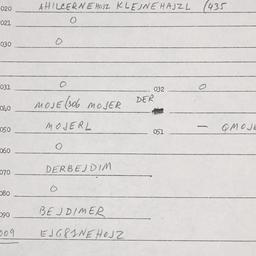 020 AHILCERNEHOJZ KLEJNEHAJZL (435
021 0
030 0
031 0 032 0
040 MOJE(306 MOJER DER
050 MOJERL 051 — QMOJE
060 0
070 DERBEJDIM
080 0
090 BEJDIMER
009 EJGRINEHOJZ